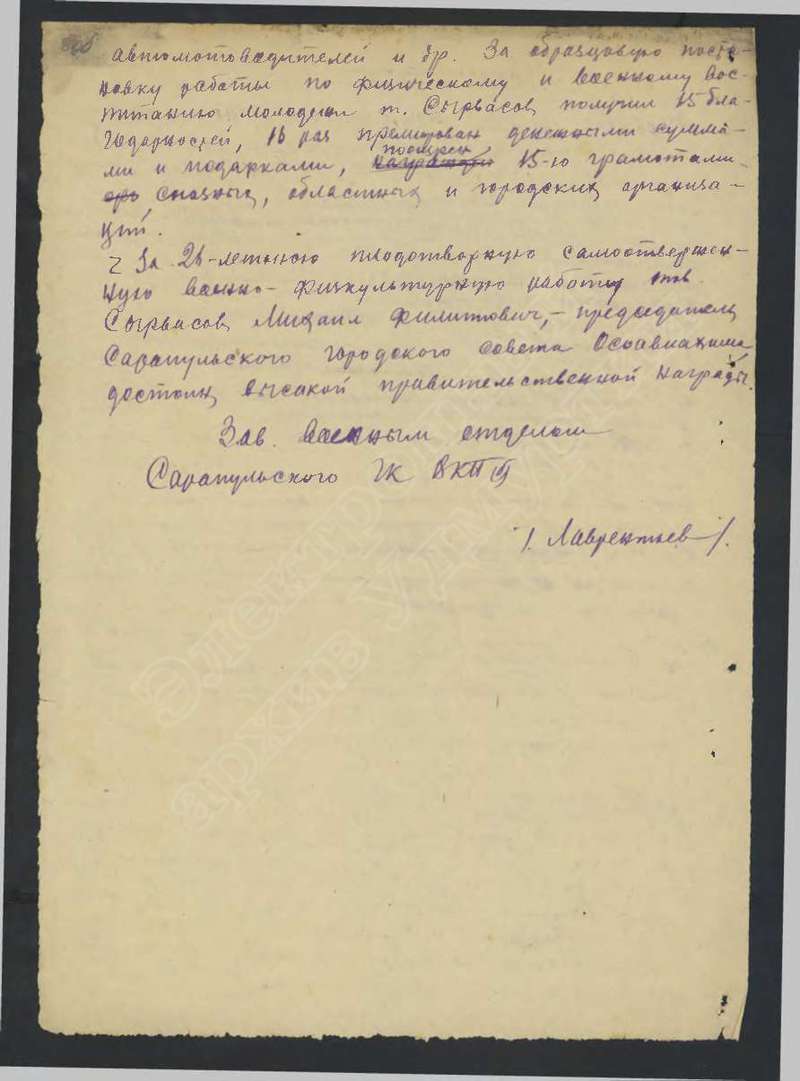 автомотоводителей и др. За образцовую поста-
новку работы по физическому и военному вос-
питанию молодежи т. Сырвасов получил 15 бла-
годарностей, 16 раз премирован денежными сумма-
поощрен
ми и подарками, 15-ю грамотами
союзных, областных и городских организа-
ций.
За 26-летнюю плодотворную самоотвержен-
ную военно-физкультурную работу тов.
Сырвасов Михаил Филиппович, - председатель
Сарапульского городского совета Осоавиахима
достоин высокой правительственной награды.
Зав. военным отделом
Сарапульского ГК ВКП(б)
/. Лаврентьев /.
Электронный
архив Удмуртии